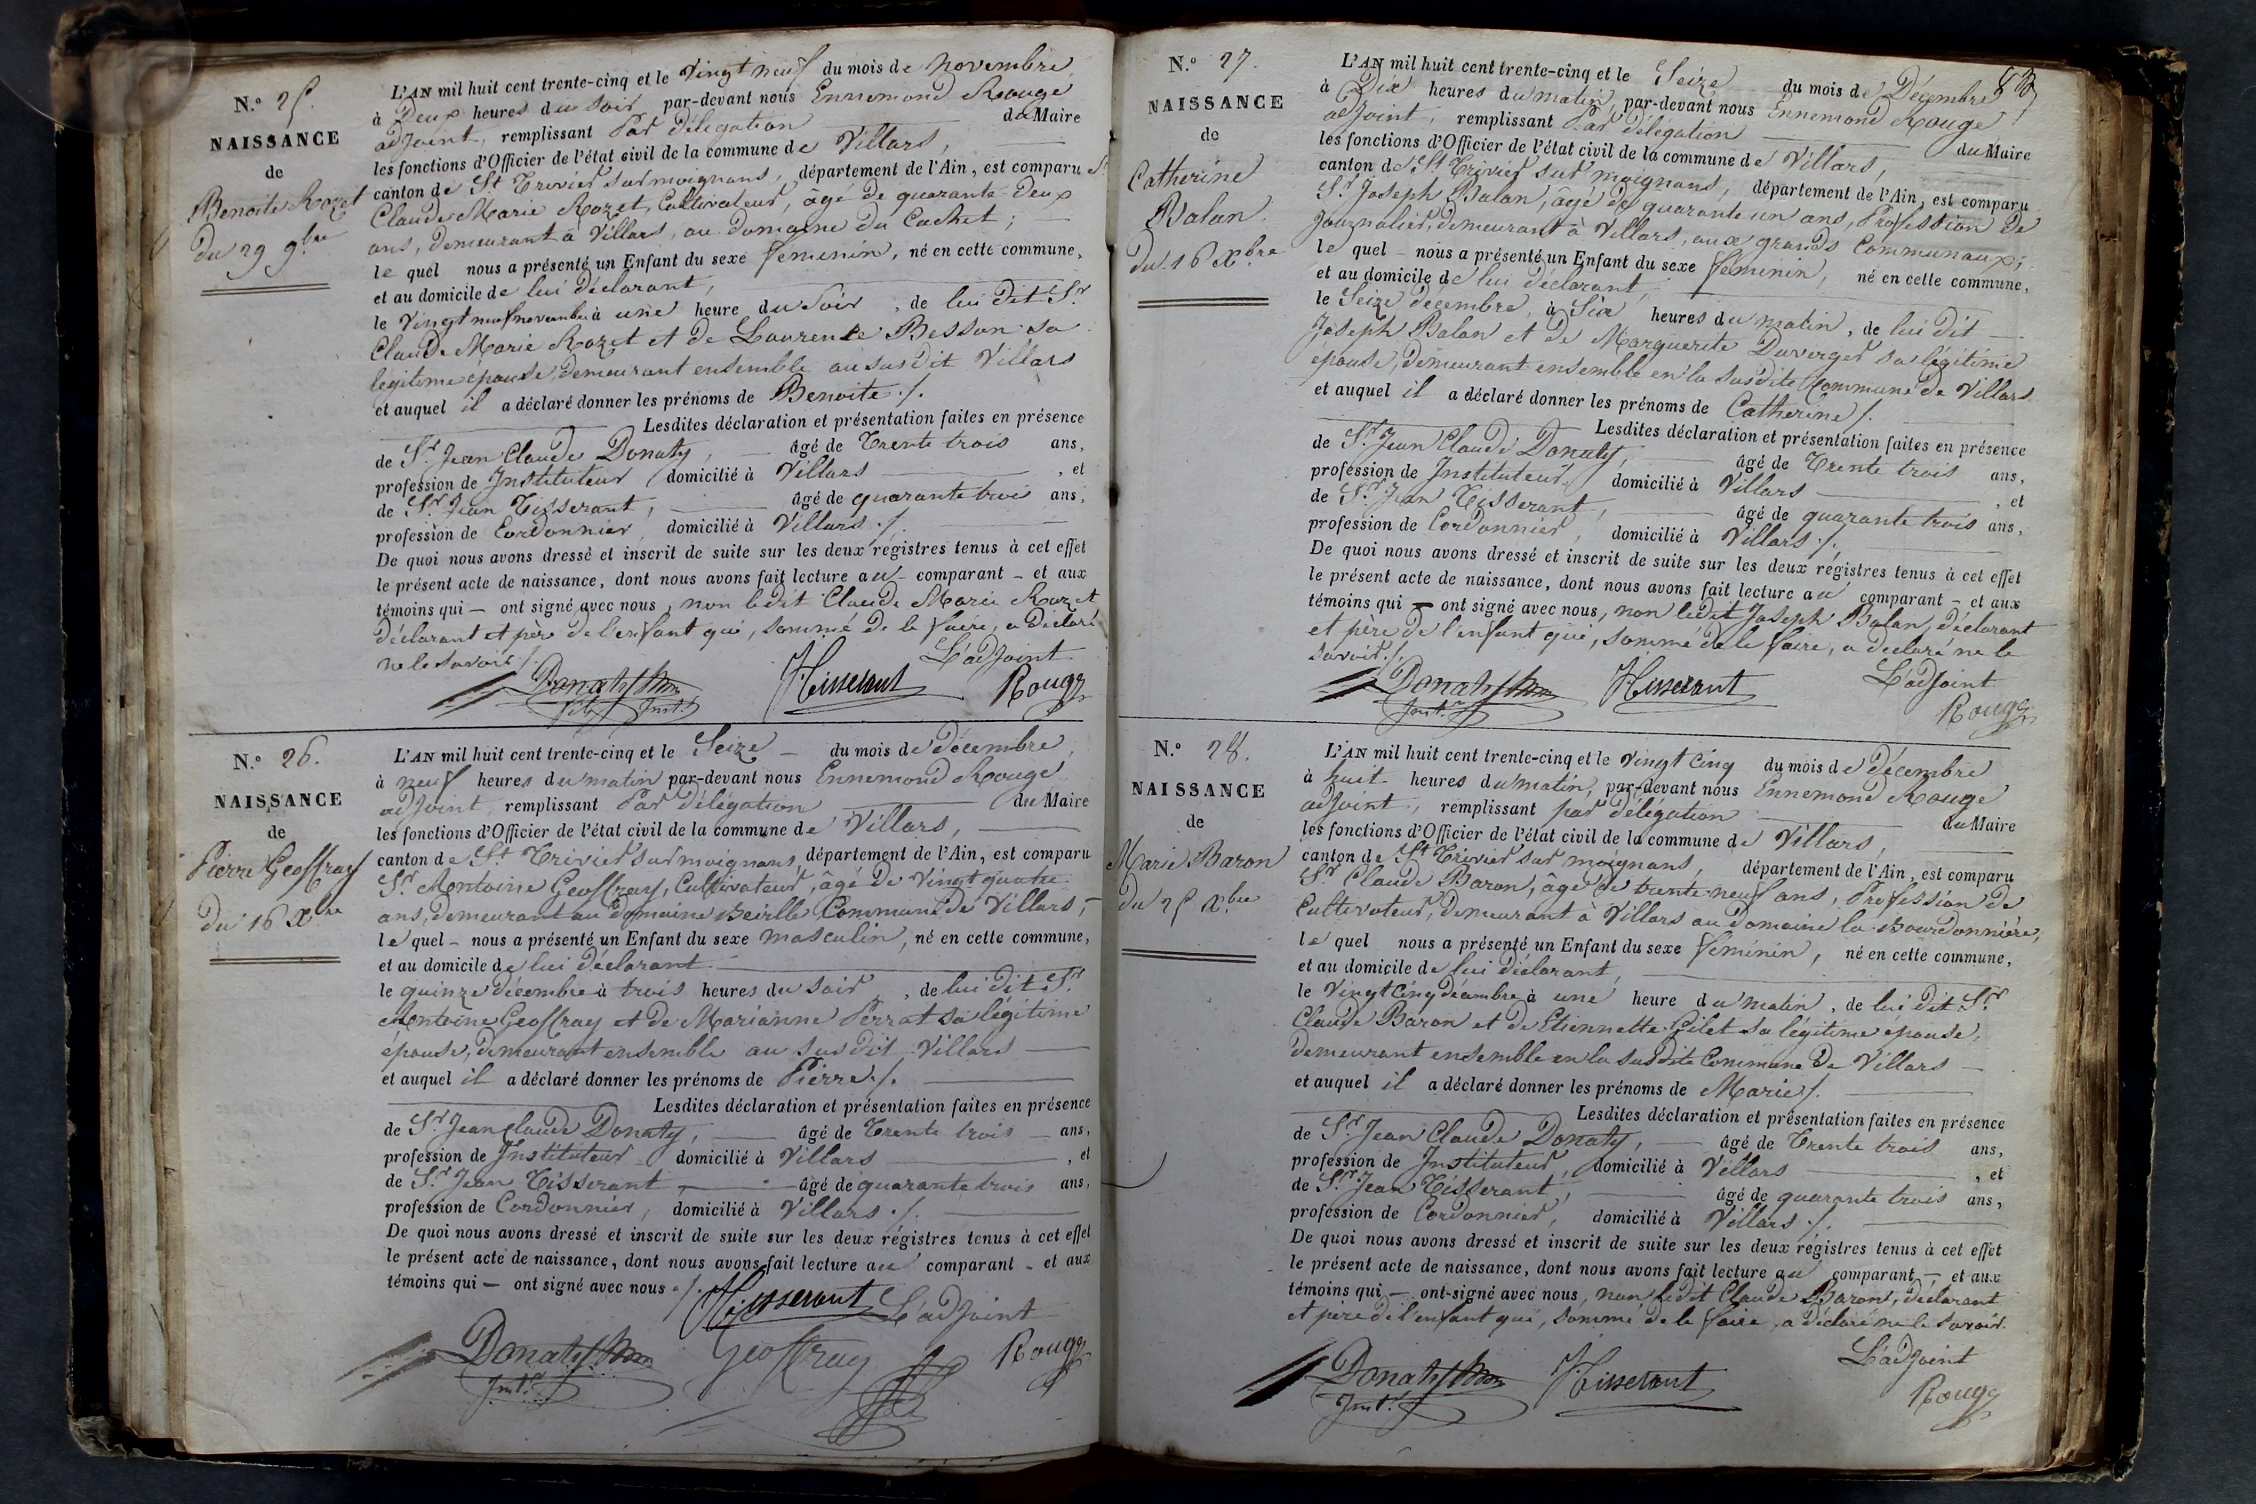 N.° 25.
NAISSANCE
de
Benoite Rozet
du 29 9.bre
L'AN mil huit cent trente-cinq et le Vingt neuf du mois de Novembre
à Deux heures du soir par-devant nous Ennemond Rouge
adjoint, remplissant Par délégation du Maire
les fonctions d'Officier de l'état civil de la commune de Villars,
canton de St Trivier sur moignans, département de l'Ain, est comparu Sr
Claude Marie Rozet, Cultivateur, âgé de quarante Deux
ans, demeurant à Villars, au Domaine Du Cachet;
le quel nous a présenté un Enfant du sexe féminin, né en cette commune,
et au domicile de lui déclarant,
le Vingt neuf novembre à une heure du Soir, de lui dit Sr
Claude Marie Rozet et de Laurence Besson sa
légitime épouse, demeurant ensemble au susdit Villars
et auquel il a déclaré donner les prénoms de Benoite ./.
Lesdites déclaration et présentation faites en présence
de Sr Jean Claude Donaty, âgé de Trente trois ans,
profession de Instituteur domicilié à Villars, et
de Sr Jean Tisserant, âgé de quarante trois ans,
profession de Cordonnier, domicilié à Villars ./.
De quoi nous avons dressé et inscrit de suite sur les deux régistres tenus à cet effet
le présent acte de naissance, dont nous avons fait lecture au comparant et aux
témoins qui ont signé avec nous, non ledit Claude Marie Rozet
déclarant et père de l'enfant qui, sommé de le faire, a déclaré
ne le savoir ./.
L'adjoint
Donaty Tisserant Rouge
Inst.r
N.° 26.
NAISSANCE
de
Pierre Geoffray
du 16 X.bre
L'AN mil huit cent trente-cinq et le Seize du mois de décembre,
à neuf heures du matin par-devant nous Ennemond Rouge
adjoint, remplissant Par délégation du Maire
les fonctions d'Officier de l'état civil de la commune de Villars,
canton de St Trivier sur moignans, département de l'Ain, est comparu
Sr Antoine Geoffray, Cultivateur, âgé de Vingt quatre
ans, demeurant au domaine Commune de Villars;
le quel nous a présenté un Enfant du sexe masculin, né en cette commune,
et au domicile de lui déclarant
le quinze décembre à trois heures du soir, de lui dit Sr
Antoine Geoffray et de Marianne Perrat sa légitime
épouse, demeurant ensemble au susdit Villars
et auquel il a déclaré donner les prénoms de Pierre ./.
Lesdites déclaration et présentation faites en présence
de Sr Jean claude Donaty, âgé de Trente trois ans,
profession de Instituteur domicilié à Villars, et
de Sr Jean Tisserant, âgé de quarante trois ans,
profession de Cordonnier, domicilié à Villars ./.
De quoi nous avons dressé et inscrit de suite sur les deux régistres tenus à cet effet
le présent acte de naissance, dont nous avons fait lecture au comparant et aux
témoins qui ont signé avec nous ./.
Tisserant L'adjoint
Donaty Geoffray Rouge
Inst.r
N.° 27.
NAISSANCE
de
Catherine
Balan
du 16 X.bre
L'AN mil huit cent trente-cinq et le Seize du mois de Décembre
à Dix heures du matin, par-devant nous Ennemond Rouge
adjoint, remplissant Par délégation du Maire
les fonctions d'Officier de l'état civil de la commune de Villars,
canton de St Trivier sur moignans, département de l'Ain, est comparu
Sr Joseph Balan, âgé de quarante un ans, Profession de
Journalier, demeurant à Villars, aux grands Communaux;
le quel nous a présenté un Enfant du sexe féminin, né en cette commune,
et au domicile de lui déclarant,
le Seize décembre, à Six heures du matin, de lui dit
Joseph Balan et de Marguerite Duverger sa légitime
épouse, demeurant ensemble en la susdite Commune de Villars
et auquel il a déclaré donner les prénoms de Catherine ./.
Lesdites déclaration et présentation faites en présence
de Sr Jean Claude Donaty, âgé de Trente trois ans,
profession de Instituteur, domicilié à Villars, et
de Sr Jean Tisserant, âgé de quarante trois ans,
profession de Cordonnier, domicilié à Villars ./.
De quoi nous avons dressé et inscrit de suite sur les deux régistres tenus à cet effet
le présent acte de naissance, dont nous avons fait lecture au comparant et aux
témoins qui ont signé avec nous, non ledit Joseph Balan, déclarant
et père de l'enfant qui, sommé de le faire, a déclaré ne le
savoir ./.
L'adjoint
Donaty Tisserant Rouge
Inst.r
N.° 28.
NAISSANCE
de
Marie Baron
du 25 X.bre
L'AN mil huit cent trente-cinq et le vingt cinq du mois de décembre
à huit heures du matin, par-devant nous Ennemond Rouge
adjoint, remplissant par délégation du Maire
les fonctions d'Officier de l'état civil de la commune de Villars,
canton de St Trivier sur moignans, département de l'Ain, est comparu
Sr Claude Baron, âgé de trente neuf ans, Profession de
Cultivateur, demeurant à Villars au domaine la Bourdonnière,
le quel nous a présenté un Enfant du sexe féminin, né en cette commune,
et au domicile de lui déclarant,
le Vingt cinq décembre à une heure du matin, de lui dit Sr
Claude Baron et de Etiennette Gilet sa légitime épouse,
demeurant ensemble en la susdite Commune de Villars
et auquel il a déclaré donner les prénoms de Marie ./.
Lesdites déclaration et présentation faites en présence
de Sr Jean Claude Donaty, âgé de Trente trois ans,
profession de Instituteur, domicilié à Villars, et
de Sr Jean Tisserant, âgé de quarante trois ans,
profession de Cordonnier, domicilié à Villars ./.
De quoi nous avons dressé et inscrit de suite sur les deux régistres tenus à cet effet
le présent acte de naissance, dont nous avons fait lecture au comparant et aux
témoins qui ont signé avec nous, non ledit Claude Baron, déclarant
et père de l'enfant qui, sommé de le faire, a déclaré ne le savoir.
L'adjoint
Donaty Tisserant Rouge
Inst.r